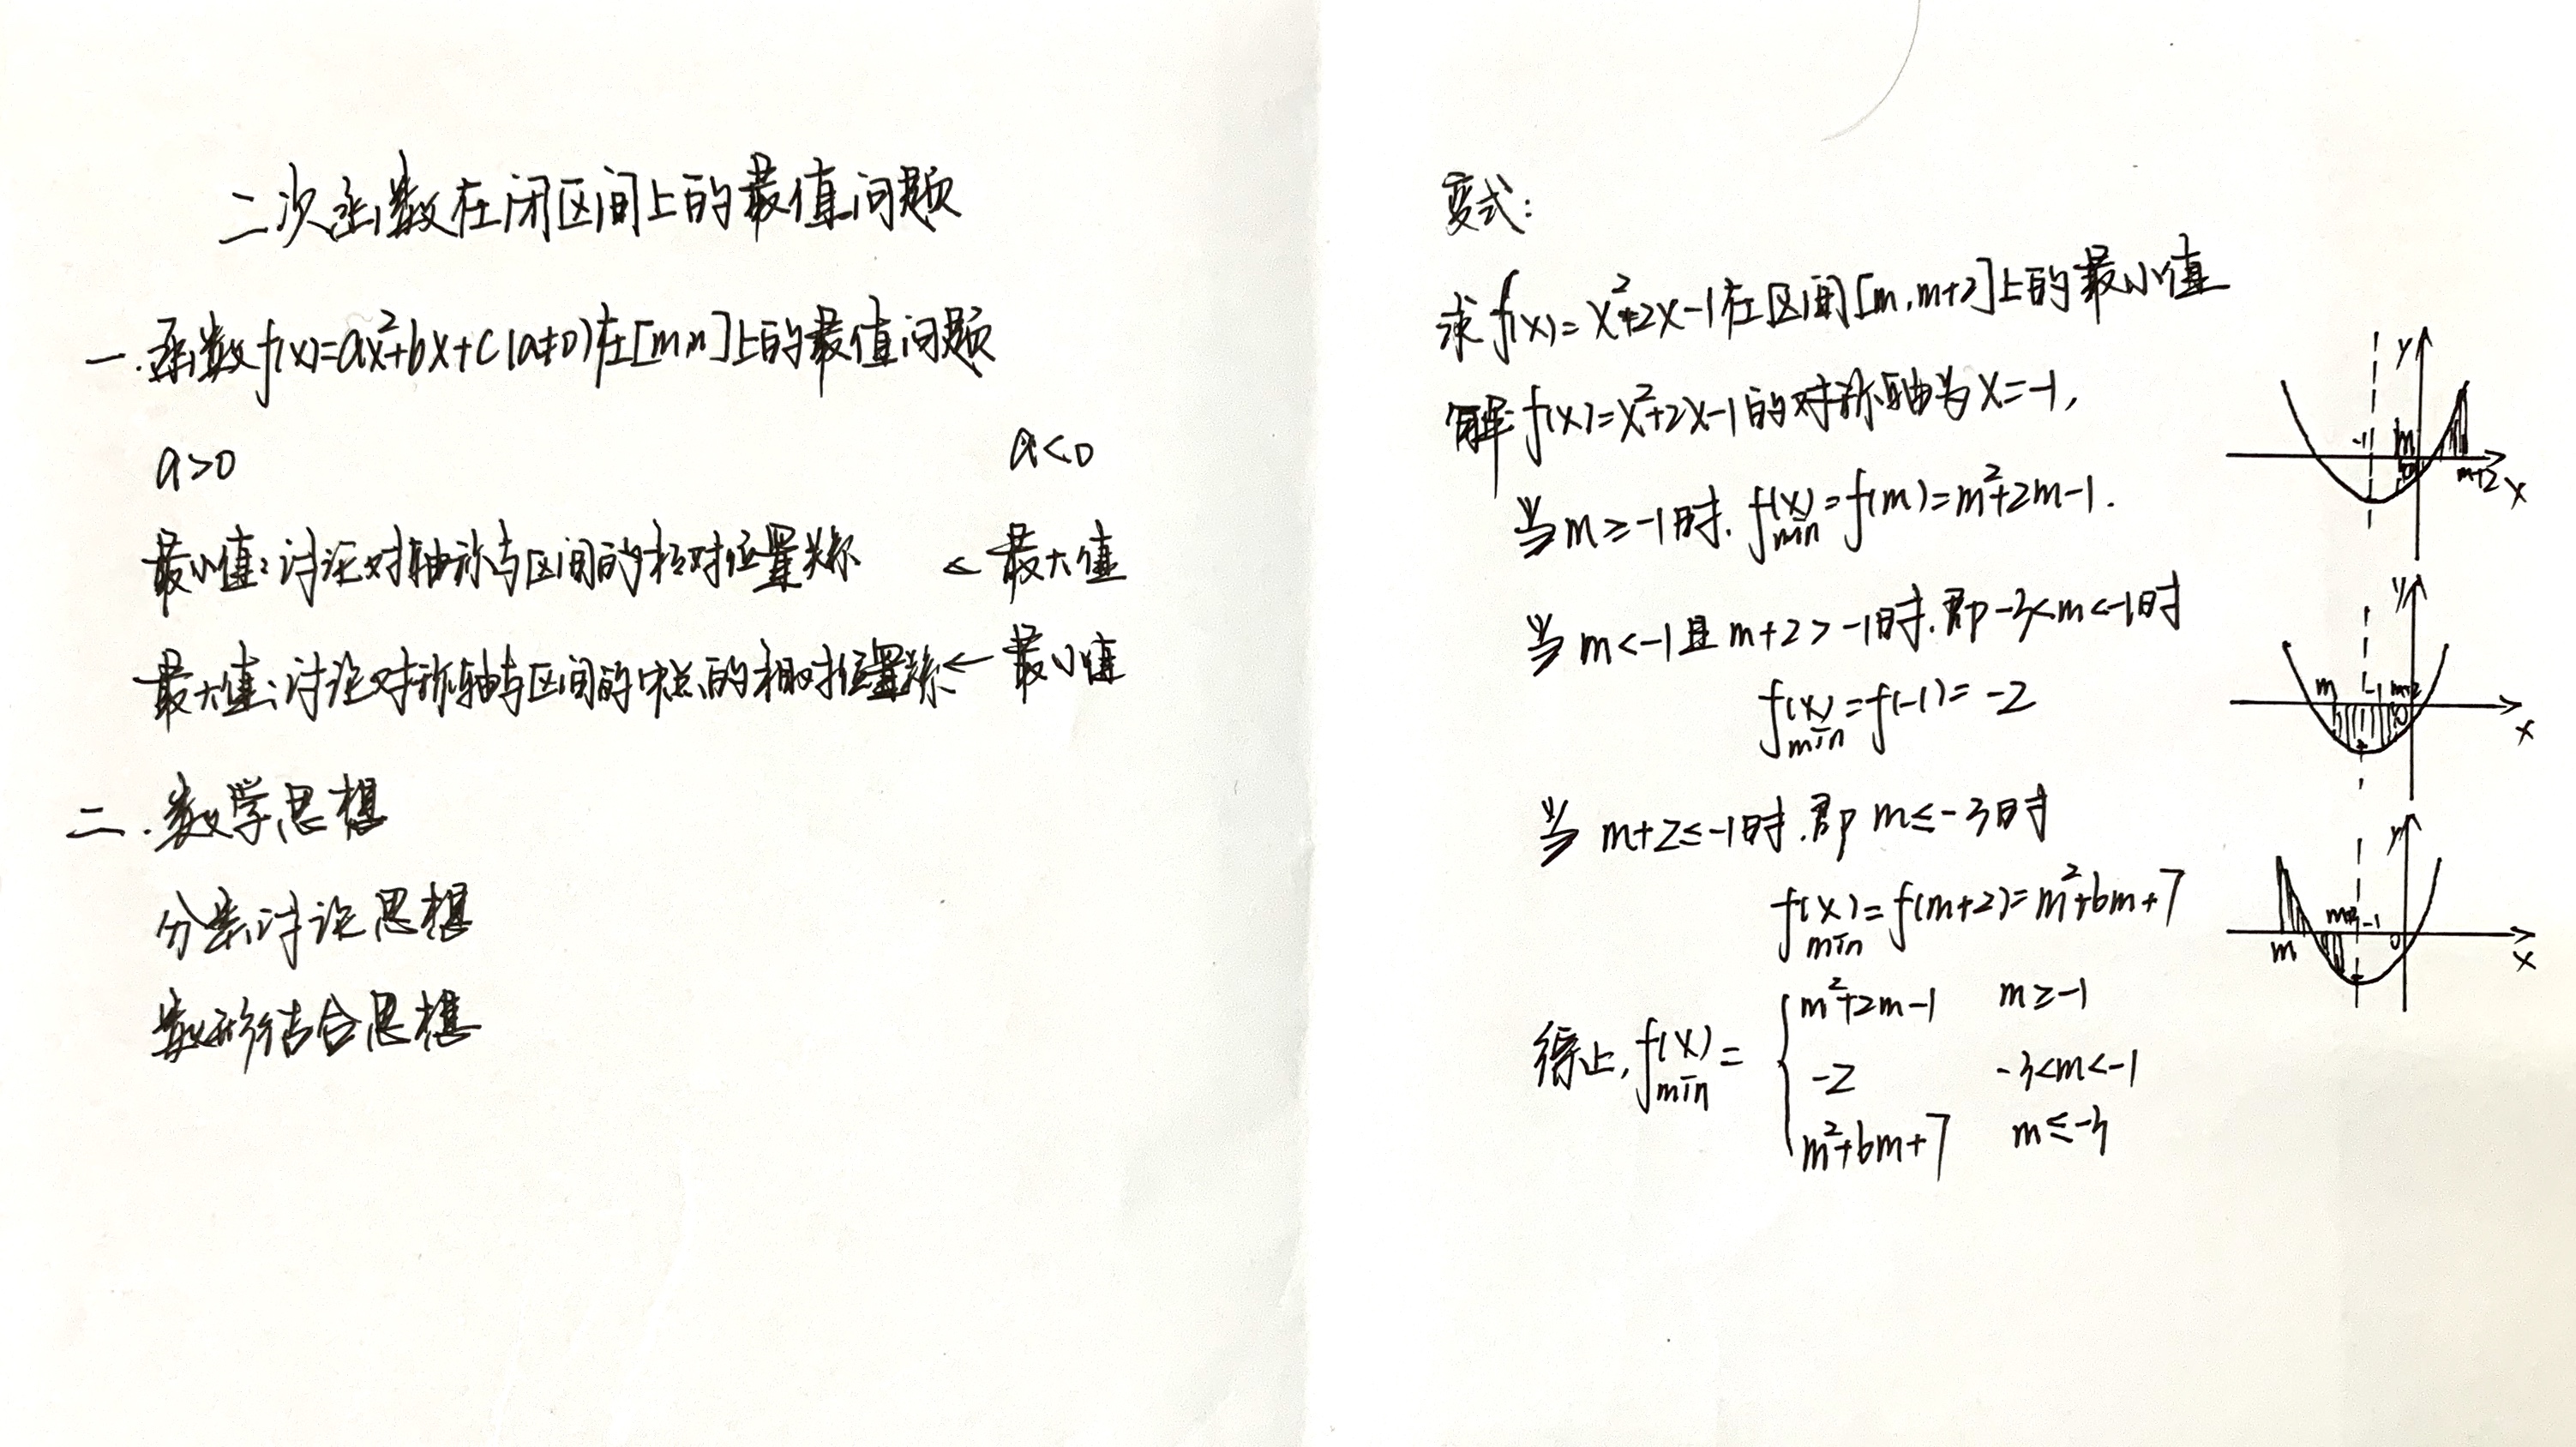 二次函数在闭区间上的最值问题
一.函数f(x)=ax²+bx+c(a≠0)在[m,n]上的最值问题
a>0 a<0
最小值:讨论对轴称与区间的相对位置关系 ← 最大值
最大值:讨论对称轴与区间的中点的相对位置关系 ← 最小值
二.数学思想
分类讨论思想
数形结合思想
变式:
求f(x)=x²+2x-1在区间[m,m+2]上的最小值
解:f(x)=x²+2x-1的对称轴为x=-1,
当m≥-1时.f(x)min=f(m)=m²+2m-1.
当m<-1且m+2>-1时.即-3<m<-1时
f(x)min=f(-1)=-2
当m+2≤-1时.即m≤-3时
f(x)min=f(m+2)=m²+6m+7
得上,f(x)min=
m²+2m-1 m≥-1
-2 -3<m<-1
m²+6m+7 m≤-3
y
-1 m 0 m+2 x
y
m -1 m+2 0 x
y
m m+2 -1 0 x